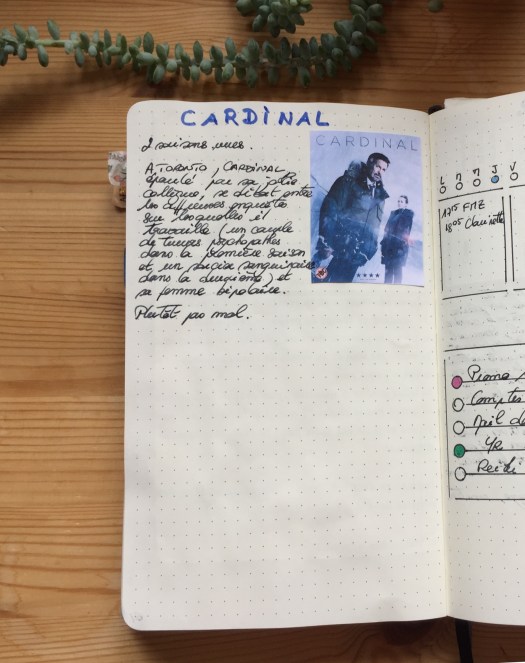 CARDINAL
2 saisons vues.
A TORONTO, CARDINAL
épaulé par sa jolie
collègue, se débat entre
les différentes enquêtes
sur lesquelles il
travaille (un couple
de tueurs psychopathes
dans la première saison
et un sorcier sanguinaire
dans la deuxième) et
sa femme bipolaire.
Plutôt pas mal.
CARDINAL
L M M J V
175 FME
1805 Clarinette
Promo
Comptes
YR
Reiki